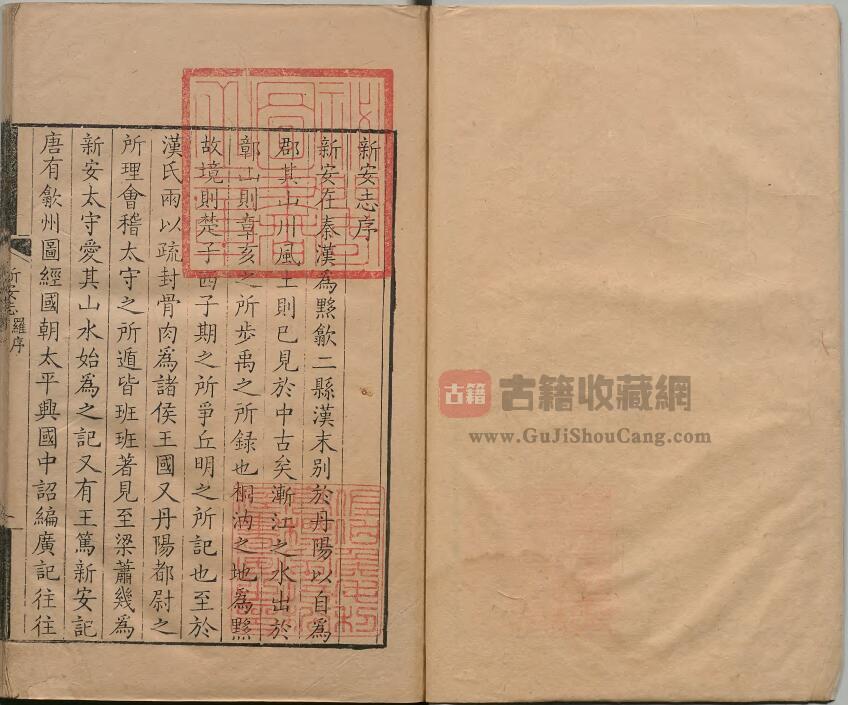 新安志序
新安在秦漢為黟歙二縣漢末別於丹陽以自為
郡其山川風土則已見於中古矣漸江之水出於
鄣山則章亥之所步禹之所録也桐汭之地為黟
故境則楚子西子期之所爭丘明之所記也至於
漢氏兩以疏封骨肉為諸侯王國又丹陽都尉之
所理會稽太守之所遁皆班班著見至梁蕭幾為
新安太守愛其山水始為之記又有王篤新安記
唐有歙州圖經國朝太平興國中詔編廣記往往
新安志
羅序
古籍
古籍收藏網
www.GuJiShouCang.com